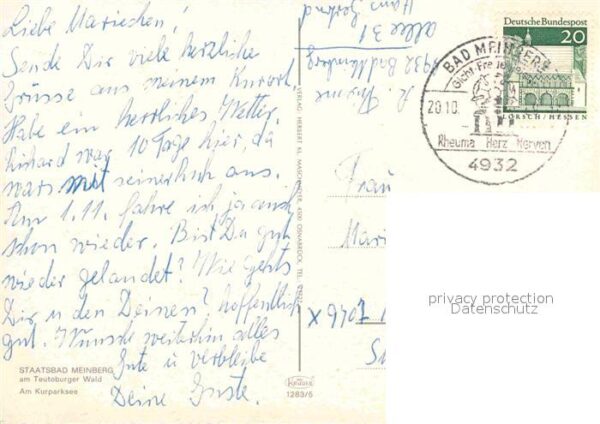 Liebe Mariechen!
Sende Dir viele herzliche
Grüsse aus meinem Kurort.
Habe ein herrliches Wetter.
Richard war 10 Tage hier, da
wars mit seinerlich aus.
Am 1.11. fahre ich ja auch
schon wieder. Bist Du gut
wieder gelandet? Wie gehts
Dir u den Deinen? hoffentlich
gut. Wünsche weiterhin alles
Gute u verbleibe
Deine
STAATSBAD MEINBERG
am Teutoburger Wald
Am Kurparksee
VERLAG HERBERT
OSNABRÜCK, TEL.
Krüger
1283/5
Haus
allee 31
4932 Bad Meinberg
Deutsche Bundespost
20
LORSCH/HESSEN
BAD MEINBERG
20.10.
Rheuma Herz Nerven
4932
Frau
Mari
privacy protection
Datenschutz